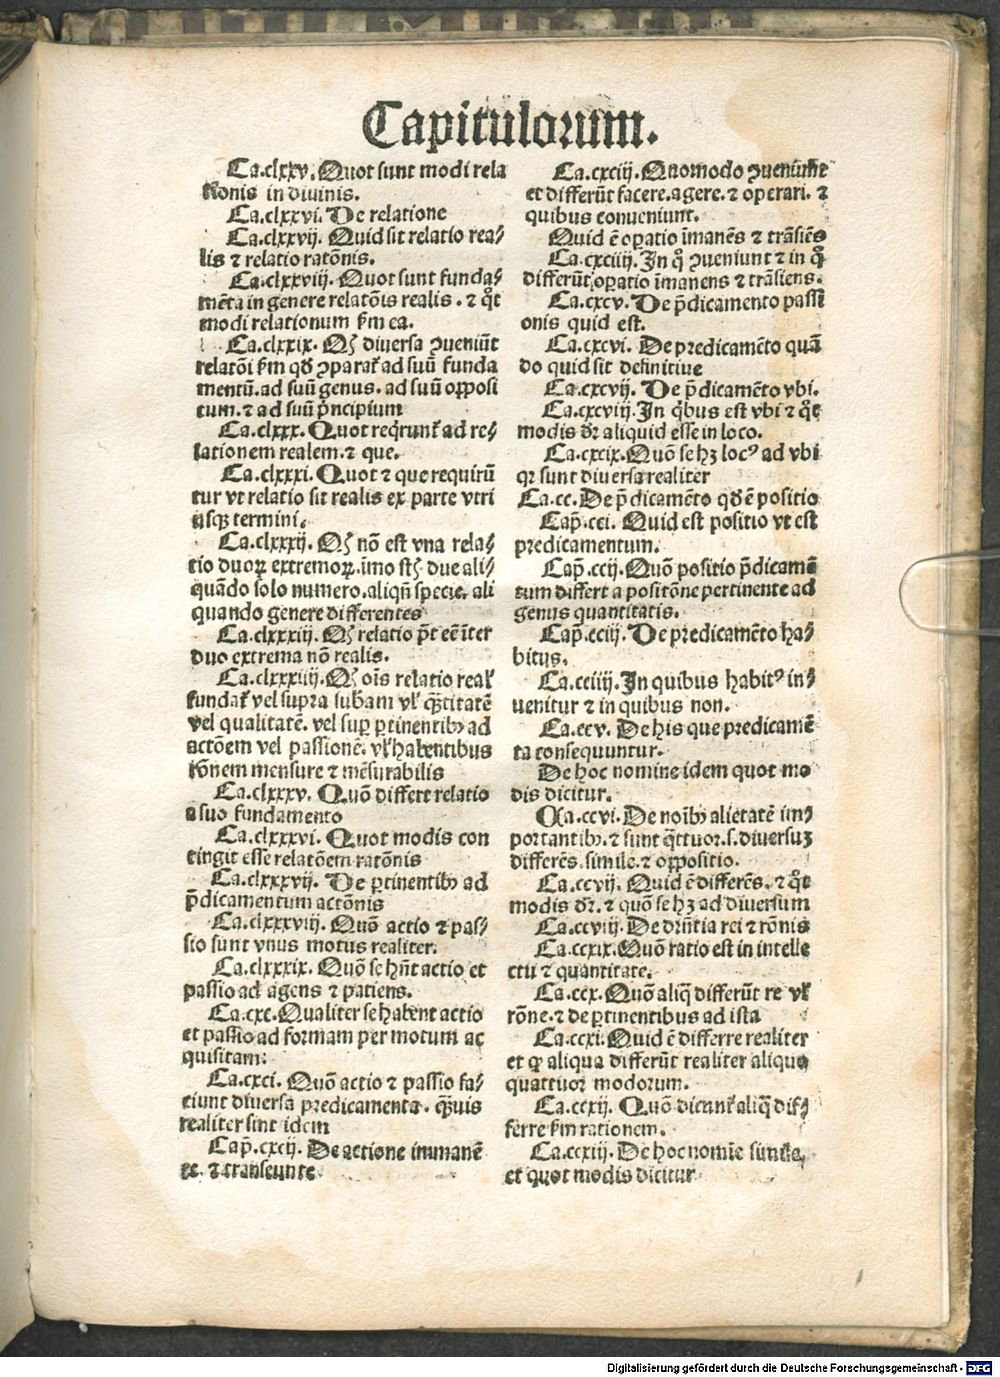 Capitulorum.
Ca.clxxv. Quot sunt modi rela
tionis in divinis.
Ca.clxxvi. De relatione
Ca.clxxvij. Quid sit relatio rea⸗
lis ⁊ relatio ratōnis.
Ca.clxxviij. Quot sunt funda⸗
mēta in genere relatōis realis. ⁊ qͦt
modi relationum ẜm ea.
Ca.clxxix. Qꝫ diversa ꝯveniūt
relatōi ẜm qđ ꝯparat᷑ ad suū funda
mentū. ad suū genus. ad suū opposi
tum. ⁊ ad suū pͥncipium
Ca.clxxx. Quot reqͥrunt᷑ ad re⸗
lationem realem. ⁊ que.
Ca.clxxxi. Quot ⁊ que requirū
tur vt relatio sit realis ex parte vtri
usqꝫ termini.
Ca.clxxxij. Qꝫ nō est vna rela⸗
tio duoꝝ extremoꝝ. imo st̄ due ali⸗
quādo solo numero. aliqn̄ specie. ali
quando genere differentes
Ca.clxxxiij. Qꝫ relatio p̄t eē īter
duo extrema nō realis.
Ca.clxxxiiij. Qꝫ oīs relatio real᷑
fundat᷑ vel supra subam vl᷑ qͣtitatē
vel qualitatē. vel suꝑ ꝑtinentibꝫ ad
actōem vel passionē. vl᷑ habentibus
rōnem mensure ⁊ mēsurabilis
Ca.clxxxv. Quō differt relatio
a suo fundamento
Ca.clxxxvi. Quot modis con
tingit esse relatōem ratōnis
Ca.clxxxvij. De ꝑtinentibꝫ ad
p̄dicamentum actōnis
Ca.clxxxviij. Quō actio ⁊ pas⸗
sio sunt vnus motus realiter.
Ca.clxxxix. Quō se hn̄t actio et
passio ad agens ⁊ patiens.
Ca.cxc. Qualiter se habent actio
et passio ad formam per motum ac
quisitam:
Ca.cxci. Quō actio ⁊ passio fa⸗
ciunt diversa predicamenta. qͣuis
realiter sint idem
Cap̄.cxcij. De actione immanē
te. ⁊ transeunte.
Ca.cxciij. Quomodo ꝯveniunt
et differūt facere. agere. ⁊ operari. ⁊
quibus conveniunt.
Quid ē oꝑatio īmanēs ⁊ trāsiēs
Ca.cxciiij. In qͦ ꝯveniunt ⁊ in qͦ
differūt oꝑatio īmanens ⁊ trāsiens.
Ca.cxcv. De p̄dicamento passi
onis quid est.
Ca.cxcvi. De predicamēto quā
do quid sit definitive
Ca.cxcvij. De p̄dicamēto vbi.
Ca.cxcviij. In qͥbus est vbi ⁊ qͦt
modis dr̄ aliquid esse in loco.
Ca.cxcix. Quō se hꝫ locꝰ ad vbi
qꝛ sunt diversa realiter
Ca.cc. De p̄dicamēto qđ ē positio
Cap̄.cci. Quid est positio vt est
predicamentum.
Cap̄.ccij. Quō positio p̄dicamē
tum differt a positōne pertinente ad
genus quantitatis.
Cap̄.cciij. De predicamēto ha⸗
bitus.
Ca.cciiij. In quibus habitꝰ in⸗
uenitur ⁊ in quibus non.
Ca.ccv. De his que predicamē
ta consequuntur.
De hoc nomine idem quot mo
dis dicitur.
Ca.ccvi. De noībꝫ alietatē im⸗
portantibꝫ. ⁊ sunt qͣttuor. s. diversuꝫ
differēs. simile. ⁊ oppositio.
Ca.ccvij. Quid ē differēs. ⁊ qͦt
modis dr̄. ⁊ quō se hꝫ ad diversum
Ca.ccviij. De drn̄tia rei ⁊ rōnis
Ca.ccix. Quō ratio est in intelle
ctu ⁊ quantitate.
Ca.ccx. Quō aliq̄ differūt re vl᷑
rōne. ⁊ de ꝑtinentibus ad ista
Ca.ccxi. Quid ē differre realiter
et qꝙ aliqua differūt realiter aliquo
quattuor modorum.
Ca.ccxij. Quō dicunt᷑ aliq̄ dif⸗
ferre ẜm rationem.
Ca.ccxiij. De hoc nomīe simile,
et quot modis dicitur
Digitalisierung gefördert durch die Deutsche Forschungsgemeinschaft - DFG